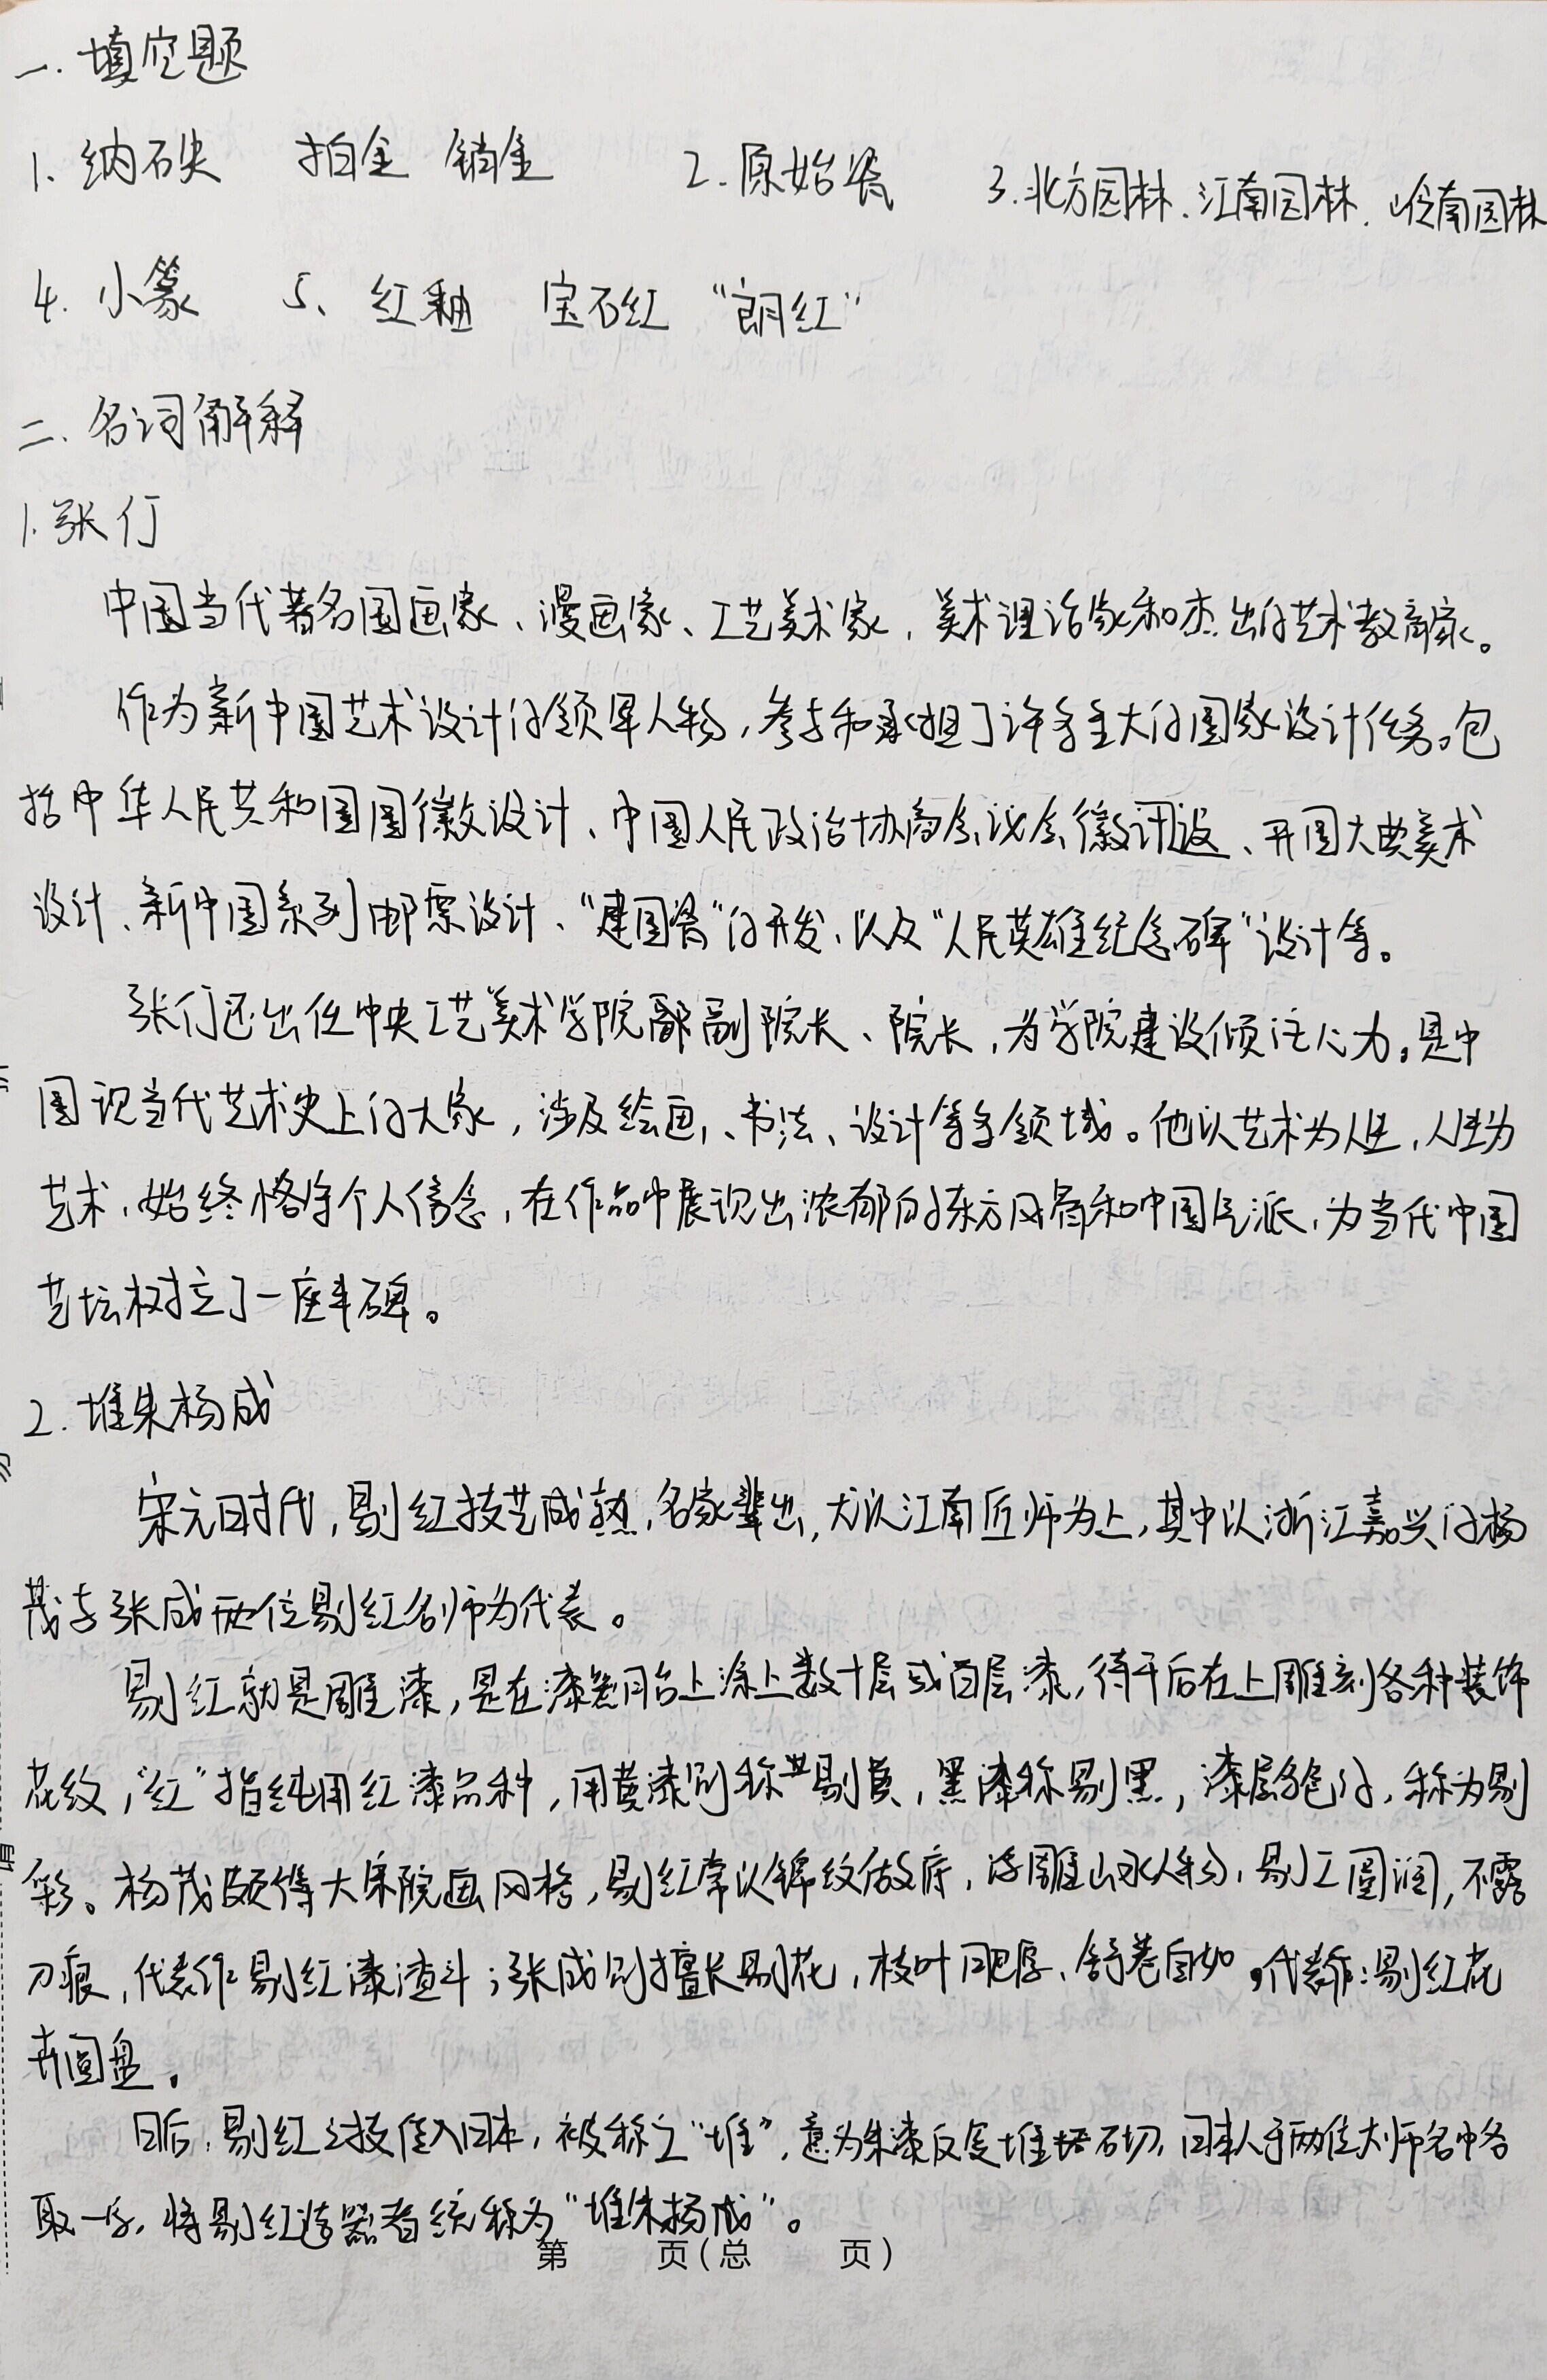 一. 填空题
1. 纳石失 拍金 销金 2. 原始瓷 3. 北方园林、江南园林、岭南园林
4. 小篆 5、红釉 宝石红 “郎红”
二. 名词解释
1. 张仃
中国当代著名国画家、漫画家、工艺美术家，美术理论家和杰出的艺术教育家。
作为新中国艺术设计的领军人物，参与和承担了许多重大的国家设计任务。包
括中华人民共和国国徽设计、中国人民政治协商会议会徽设计、开国大典美术
设计、新中国系列邮票设计、“建国瓷”的开发、以及“人民英雄纪念碑”设计等。
张仃还出任中央工艺美术学院副院长、院长，为学院建设倾注心力。是中
国现当代艺术史上的大家，涉及绘画、书法、设计等多领域。他以艺术为人生，人生为
艺术，始终恪守个人信念，在作品中展现出浓郁的东方风骨和中国气派，为当代中国
艺坛树立了一座丰碑。
2. 堆朱杨成
宋元时代，剔红技艺成熟，名家辈出，尤以江南匠师为上，其中以浙江嘉兴的杨
茂与张成两位剔红名师为代表。
剔红就是雕漆，是在漆器胎上涂上数十层或百层漆，待干后在上雕刻各种装饰
花纹，“红”指纯用红漆品种，用黄漆则称剔黄，黑漆称剔黑，漆层多色的，称为剔
彩。杨茂颇得大宋院画风格，剔红常以锦纹做底，浮雕山水人物，剔工圆润，不露
刀痕，代表作剔红漆渣斗；张成则擅长剔花，枝叶肥厚、舒卷自如。代表作：剔红花
卉圆盘。
日后，剔红之技传入日本，被称之“堆”，意为朱漆反复堆堪石切，日本人于两位大师名中各
取一字，将剔红漆器者统称为“堆朱杨成”。
第 页（总 页）